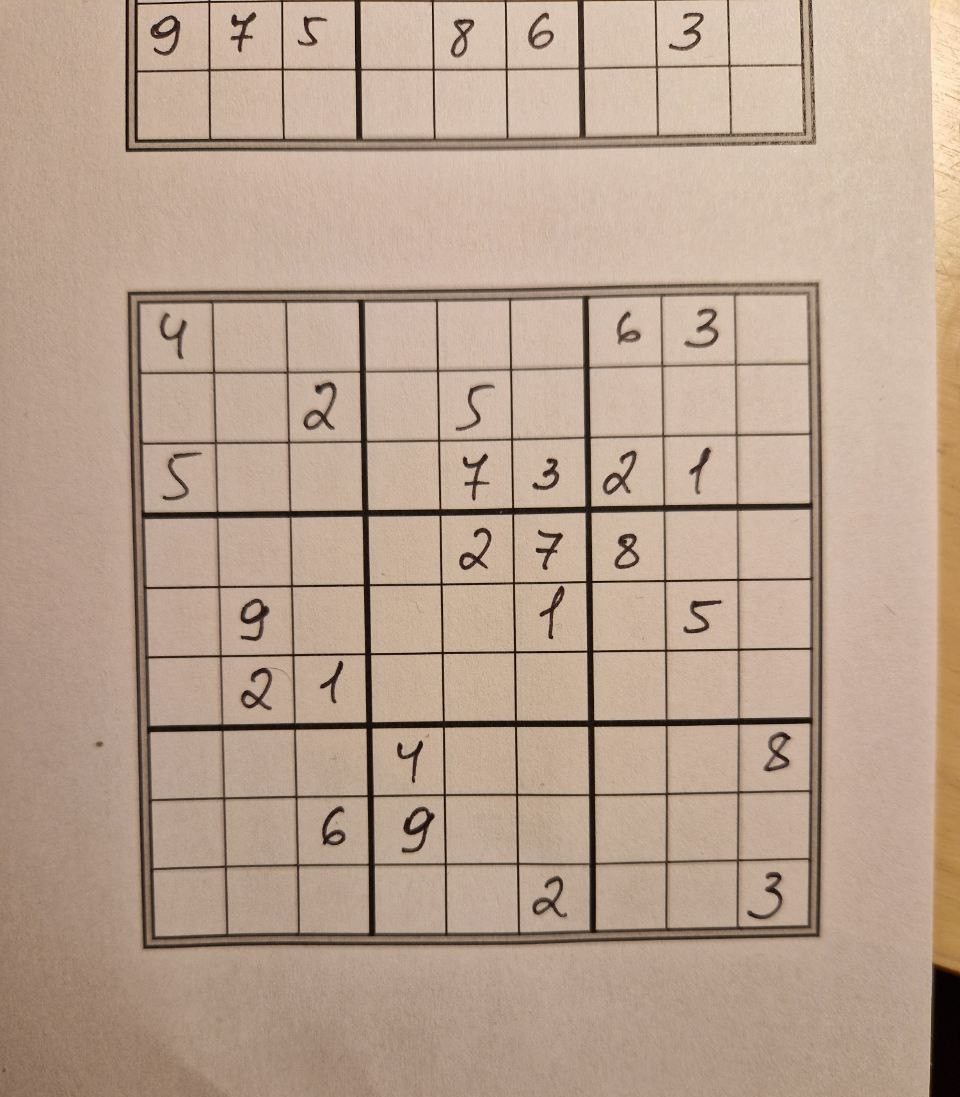 9 7 5 8 6 3
4 6 3
2 5
5 7 3 2 1
2 7 8
9 1 5
2 1
4 8
6 9
2 3